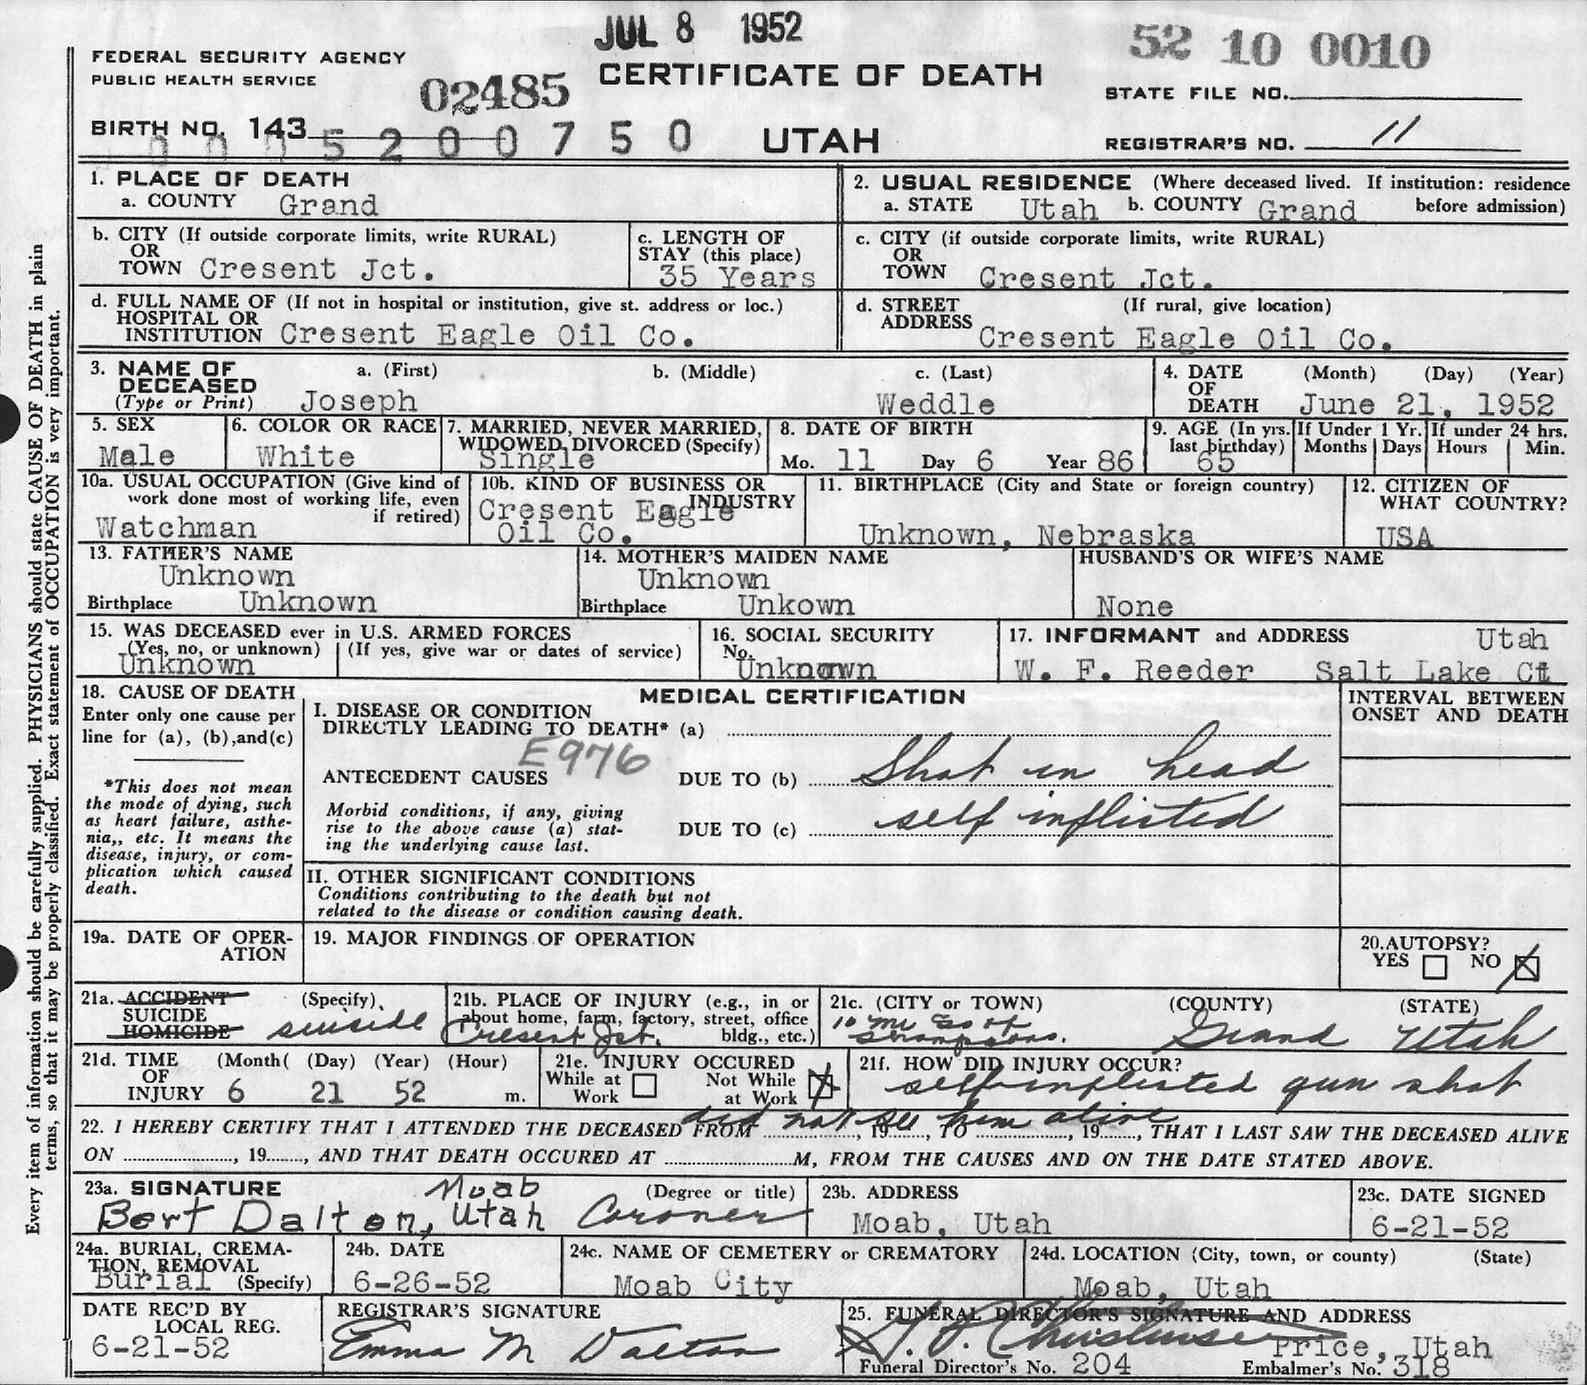 JUL 8 1952
52 10 0010
FEDERAL SECURITY AGENCY
PUBLIC HEALTH SERVICE
02485
CERTIFICATE OF DEATH
STATE FILE NO.
BIRTH NO. 143
0 0 0 5 2 0 0 7 5 0
UTAH
REGISTRAR'S NO. 11
1. PLACE OF DEATH
a. COUNTY Grand
2. USUAL RESIDENCE (Where deceased lived. If institution: residence before admission)
a. STATE Utah b. COUNTY Grand
b. CITY (If outside corporate limits, write RURAL)
OR
TOWN Cresent Jct.
c. LENGTH OF
STAY (this place)
35 Years
c. CITY (if outside corporate limits, write RURAL)
OR
TOWN Cresent Jct.
d. FULL NAME OF (If not in hospital or institution, give st. address or loc.)
HOSPITAL OR
INSTITUTION Cresent Eagle Oil Co.
d. STREET (If rural, give location)
ADDRESS Cresent Eagle Oil Co.
3. NAME OF
DECEASED
(Type or Print)
a. (First) b. (Middle) c. (Last)
Joseph Weddle
4. DATE (Month) (Day) (Year)
OF
DEATH June 21, 1952
5. SEX
Male
6. COLOR OR RACE
White
7. MARRIED, NEVER MARRIED,
WIDOWED, DIVORCED (Specify)
Single
8. DATE OF BIRTH
Mo. 11 Day 6 Year 86
9. AGE (In yrs.
last birthday)
65
If Under 1 Yr.
Months Days
If under 24 hrs.
Hours Min.
10a. USUAL OCCUPATION (Give kind of
work done most of working life, even
if retired)
Watchman
10b. KIND OF BUSINESS OR
INDUSTRY
Cresent Eagle
Oil Co.
11. BIRTHPLACE (City and State or foreign country)
Unknown, Nebraska
12. CITIZEN OF
WHAT COUNTRY?
USA
13. FATHER'S NAME
Unknown
Birthplace Unknown
14. MOTHER'S MAIDEN NAME
Unknown
Birthplace Unkown
HUSBAND'S OR WIFE'S NAME
None
15. WAS DECEASED ever in U.S. ARMED FORCES
(Yes, no, or unknown) (If yes, give war or dates of service)
Unknown
16. SOCIAL SECURITY
No.
Unknown
17. INFORMANT and ADDRESS Utah
W. F. Reeder Salt Lake Ct
18. CAUSE OF DEATH
Enter only one cause per
line for (a), (b),and(c)
*This does not mean
the mode of dying, such
as heart failure, asthe-
nia,, etc. It means the
disease, injury, or com-
plication which caused
death.
MEDICAL CERTIFICATION
INTERVAL BETWEEN
ONSET AND DEATH
I. DISEASE OR CONDITION
DIRECTLY LEADING TO DEATH* (a)
E976
ANTECEDENT CAUSES DUE TO (b) Shot in head
Morbid conditions, if any, giving
rise to the above cause (a) stat-
ing the underlying cause last.
DUE TO (c) self inflicted
II. OTHER SIGNIFICANT CONDITIONS
Conditions contributing to the death but not
related to the disease or condition causing death.
19a. DATE OF OPER-
ATION
19. MAJOR FINDINGS OF OPERATION
20.AUTOPSY?
YES NO
21a. ACCIDENT (Specify)
SUICIDE
HOMICIDE suicide
21b. PLACE OF INJURY (e.g., in or
about home, farm, factory, street, office
bldg., etc.)
Cresent Jct.
21c. (CITY or TOWN) (COUNTY) (STATE)
10 Mi
Grand Utah
21d. TIME (Month( (Day) (Year) (Hour)
OF
INJURY 6 21 52 m.
21e. INJURY OCCURED
While at Work
Not While at Work
21f. HOW DID INJURY OCCUR?
self inflicted gun shot
did not see him alive
22. I HEREBY CERTIFY THAT I ATTENDED THE DECEASED FROM , 19 , TO , 19 , THAT I LAST SAW THE DECEASED ALIVE
ON , 19 , AND THAT DEATH OCCURED AT M, FROM THE CAUSES AND ON THE DATE STATED ABOVE.
23a. SIGNATURE (Degree or title)
Moab
Bert Dalton, Utah Coroner
23b. ADDRESS
Moab, Utah
23c. DATE SIGNED
6-21-52
24a. BURIAL, CREMA-
TION, REMOVAL
Burial (Specify)
24b. DATE
6-26-52
24c. NAME OF CEMETERY or CREMATORY
Moab City
24d. LOCATION (City, town, or county) (State)
Moab, Utah
DATE REC'D BY
LOCAL REG.
6-21-52
REGISTRAR'S SIGNATURE
Emma M Dalton
25. FUNERAL DIRECTOR'S SIGNATURE AND ADDRESS
Price, Utah
Funeral Director's No. 204 Embalmer's No. 318
Every item of information should be carefully supplied. PHYSICIANS should state CAUSE OF DEATH in plain
terms, so that it may be properly classified. Exact statement of OCCUPATION is very important.